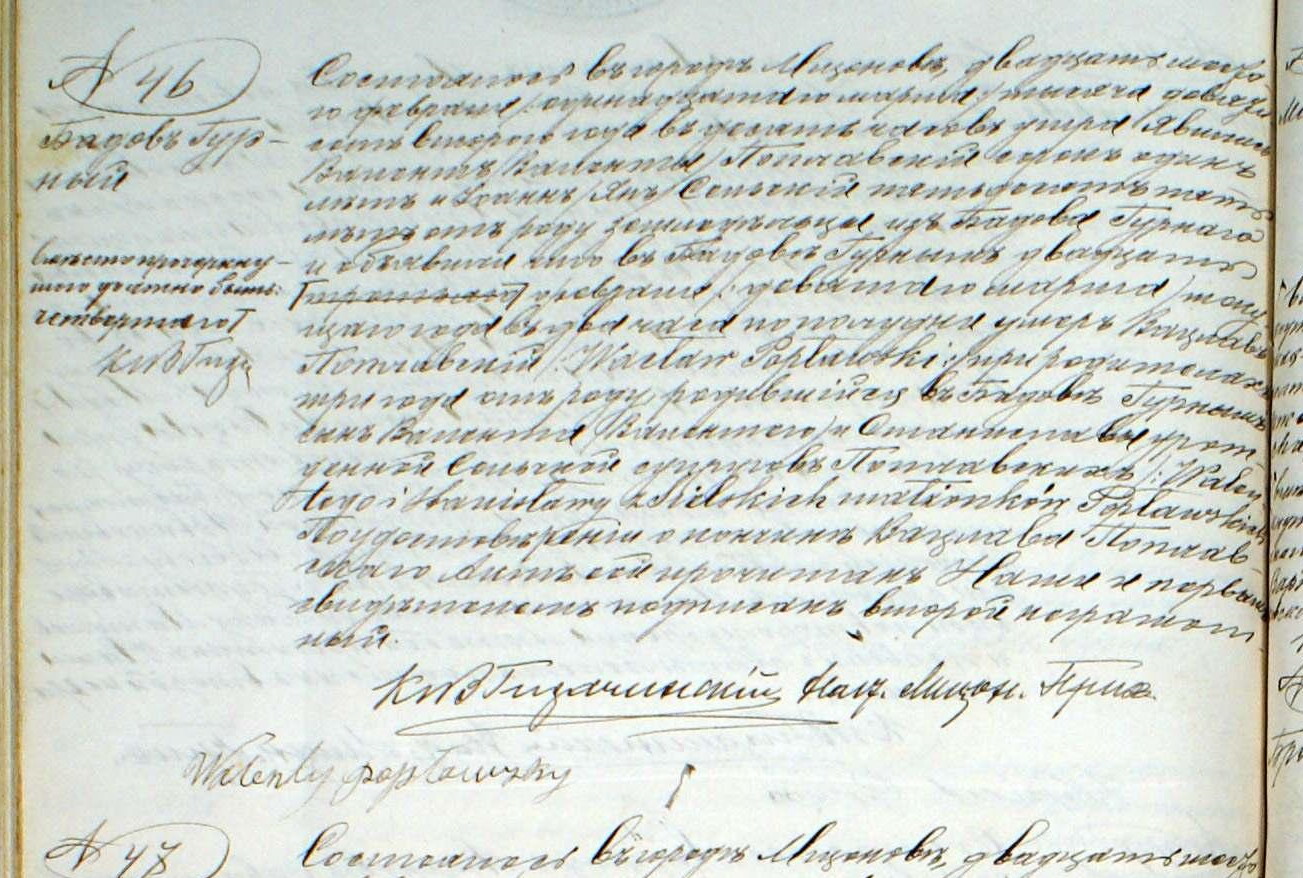 № 46
Бадовъ Гур-
ный
вместо прочеркну-
таго должно быть:
четвертаго
КнВГиз
Состоялось въ городѣ Мщоновѣ, двадцать шесто
го февраля /одинадцатаго марта/ тысяча девять
сотъ второго года въ десять часовъ утра. Явились
Валентъ /Валенты/ Поплавскій сорокъ одинъ
лѣтъ и Іоаннъ /Янъ/ Сельскій пятьдесятъ пять
лѣтъ отъ роду земледѣльцы изъ Бадова Гурнаго
и объявили что въ Бадовѣ Гурномъ двадцать
февраля /девятаго марта/ теку
щаго года въ два часа по полудни умеръ Вацлавъ
Поплавскій /:Wacław Popławski:/ при родителяхъ
три года отъ роду, родившійся въ Бадовѣ Гурномъ
сынъ Валента /Валентего/ и Станиславы урож-
денной Сельской супруговъ Поплавскихъ /:Walen
tego i Stanisławy z Sielskich małżonków Popławskich
По удостовѣреніи о кончинѣ Вацлава Поплав-
скаго Актъ сей прочитанъ Нами и первымъ
свидѣтелемъ подписанъ второй неграмот
ный.
КнВГизачинскій Нац. Мщон. Прих.
Walenty popławsky
№ 47
Состоялось въ городѣ Мщоновѣ, двадцать шесто